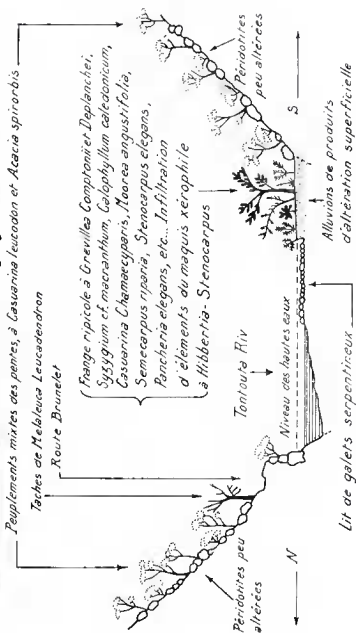 Peuplements mixtes des pentes, à Casuarina leucodon et Acacia spirorbis
Taches de Melaleuca Leucadendron
Route Brunelet
Frange ripicole à Grevillea Comptonii et Deplanchei,
Syzygium cf. macranthum, Calophyllum caledonicum,
Casuarina Chamaecyparis, Moorea angustifolia,
Semecarpus riparia, Stenocarpus elegans,
Pancheria elegans, etc... Infiltration
d'éléments du maquis xérophile
à Hibbertia-Stenocarpus
Tontouta Riv
Niveau des hautes eaux
Péridotites peu
altérées
Péridotites
peu altérées
N
S
Lit de galets serpentineux
Alluvions de produits
d'altération superficielle